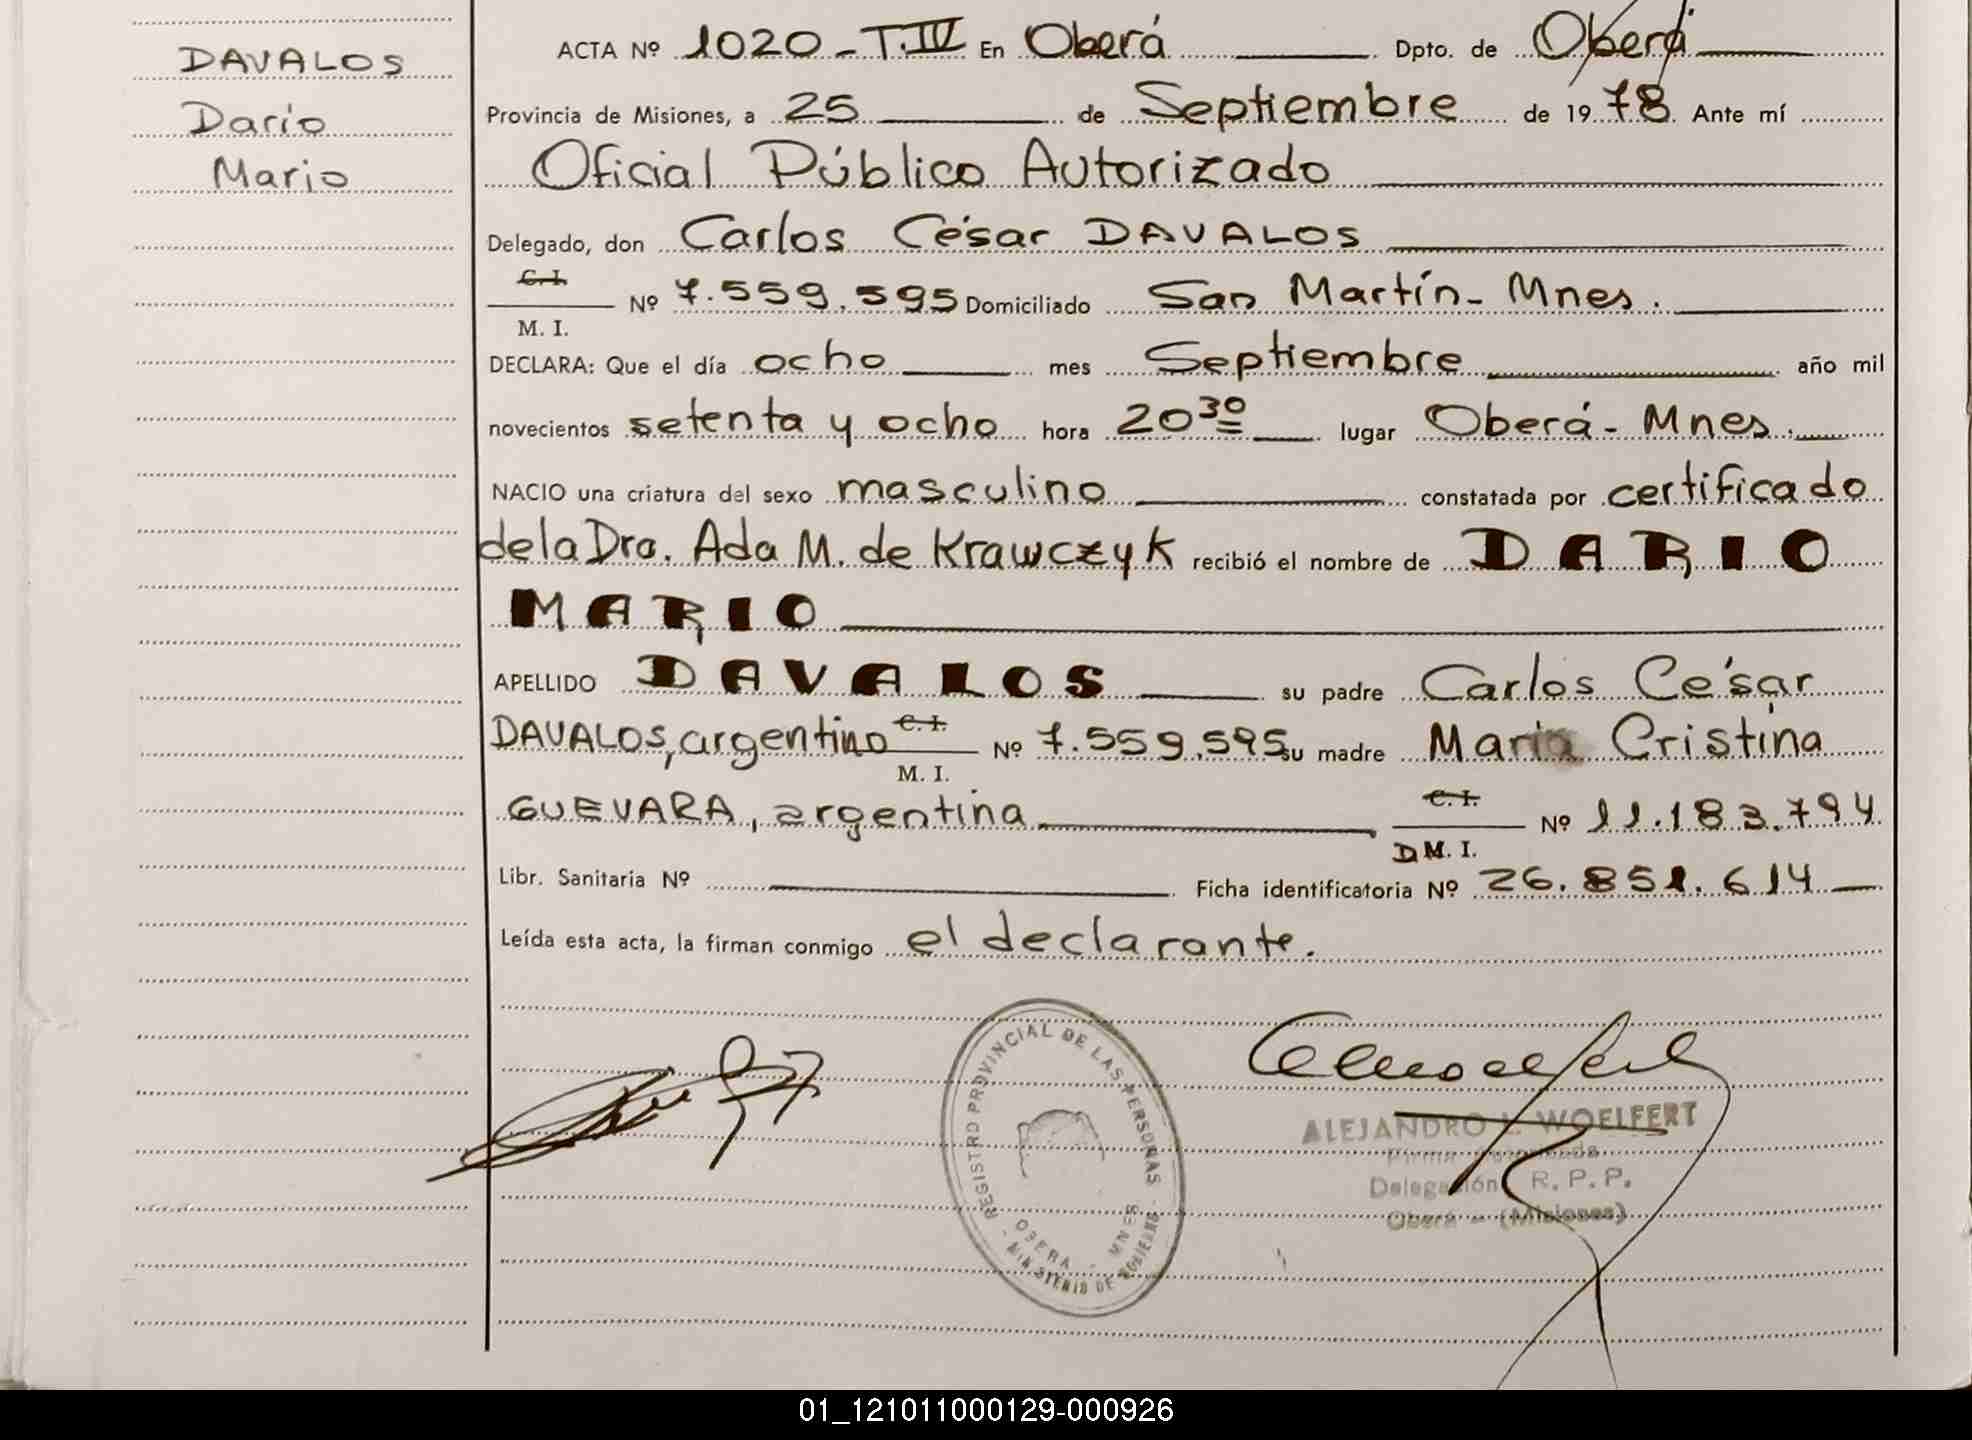 DAVALOS
Darío
Mario
ACTA Nº 1020 - T. IV En Oberá Dpto. de Oberá
Provincia de Misiones, a 25 de Septiembre de 1978 Ante mí
Oficial Público Autorizado
Delegado, don Carlos César DAVALOS
C. I.
Nº 7.559.595 Domiciliado San Martín - Mnes.
M. I.
DECLARA: Que el día ocho mes Septiembre año mil
novecientos setenta y ocho hora 20 30 lugar Oberá - Mnes.
NACIO una criatura del sexo masculino constatada por certificado
de la Dra. Ada M. de Krawczyk recibió el nombre de DARIO
MARIO
APELLIDO DAVALOS su padre Carlos César
DAVALOS, argentino C. I. Nº 7.559.595 su madre María Cristina
M. I.
GUEVARA, argentina C. I. Nº 11.183.794
D M. I.
Libr. Sanitaria Nº Ficha identificatoria Nº 26.851.614
Leída esta acta, la firman conmigo el declarante.
REGISTRO PROVINCIAL DE LAS PERSONAS
OBERA - MNES
MINISTERIO DE GOBIERNO
ALEJANDRO L. WOELFERT
Firma Autorizada
Delegación R. P. P.
Oberá - (Misiones)
01_121011000129-000926